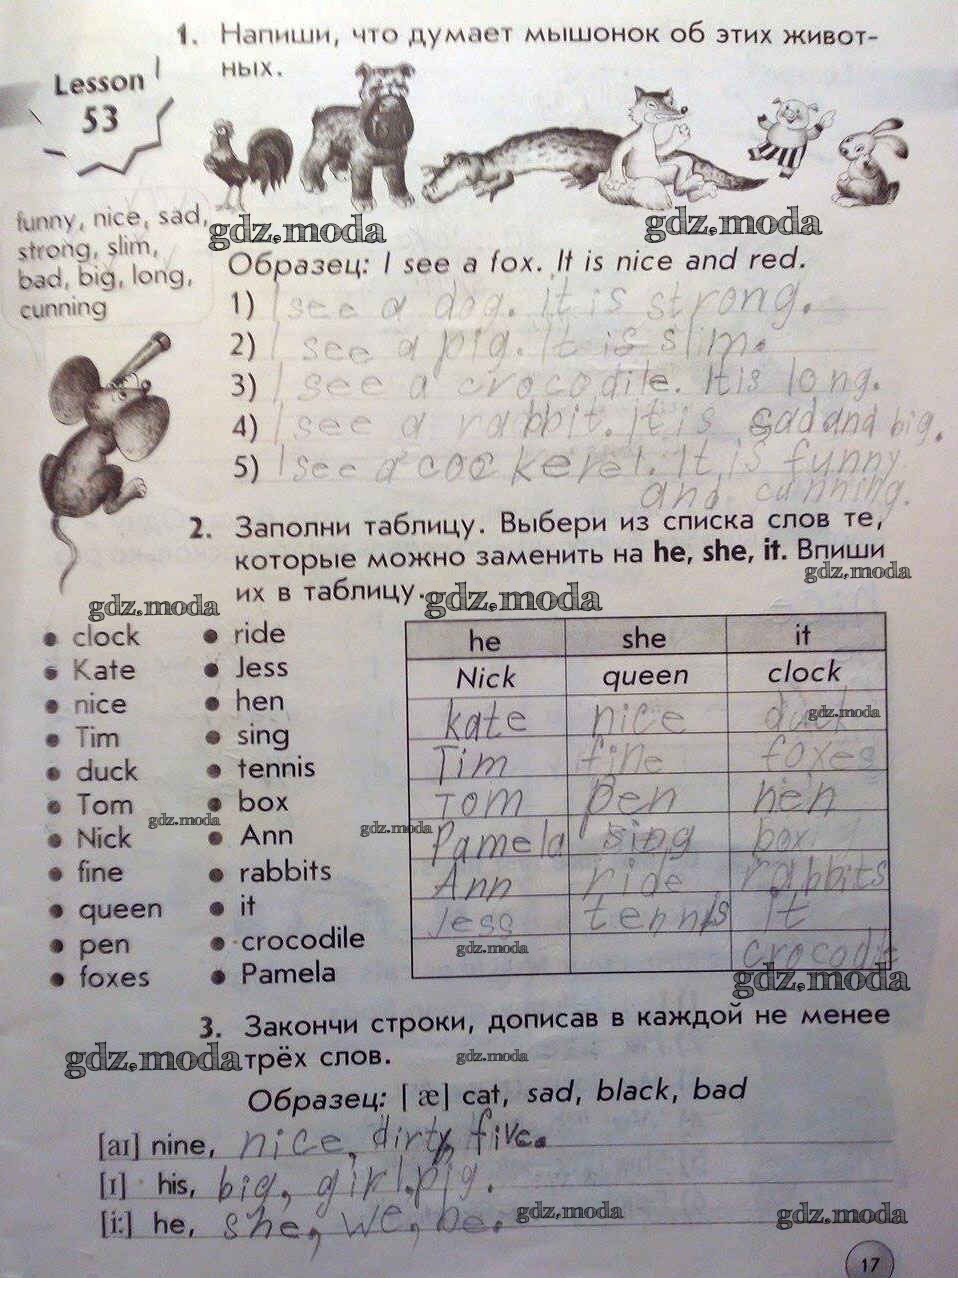 1. Напиши, что думает мышонок об этих живот-
ных.
Lesson
53
funny, nice, sad,
strong, slim,
bad, big, long,
cunning
gdz.moda
gdz.moda
Образец: I see a fox. It is nice and red.
1) I see a dog. It is strong.
2) I see a pig. It is slim.
3) I see a crocodile. It is long.
4) I see a rabbit. It is sad and big.
5) I see a cockerel. It is funny
and cunning.
2. Заполни таблицу. Выбери из списка слов те,
которые можно заменить на he, she, it. Впиши
их в таблицу.
gdz.moda
gdz.moda
gdz.moda
• clock
• Kate
• nice
• Tim
• duck
• Tom
• Nick
• fine
• queen
• pen
• foxes
• ride
• Jess
• hen
• sing
• tennis
• box
• Ann
• rabbits
• it
• crocodile
• Pamela
gdz.moda
he she it
Nick queen clock
Kate nice duck
gdz.moda
Tim fine foxes
Tom pen hen
gdz.moda
Pamela sing box
Ann ride rabbits
Jess tennis it
gdz.moda
crocodile
gdz.moda
3. Закончи строки, дописав в каждой не менее
трёх слов.
gdz.moda
gdz.moda
Образец: [æ] cat, sad, black, bad
[aɪ] nine, nice, dirty, five.
[ɪ] his, big, girl, pig.
[i:] he, she, we, be.
gdz.moda
gdz.moda
17